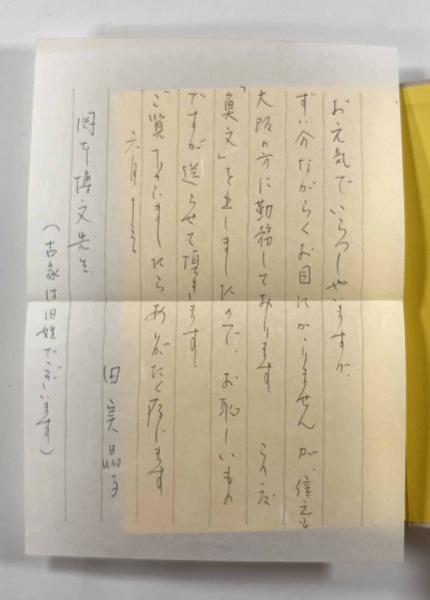 お元気でいらっしゃいますか、
ずい分ながらくお目にかゝりませんが、
大阪の方に勤務しております。この度
「」を出しましたので、お恥しいもの
ですが送らせて頂きます。
ご覧下さいましたらありがたく存じます
六月
岡本博文先生
田実晶子
(古家は旧姓でございます)